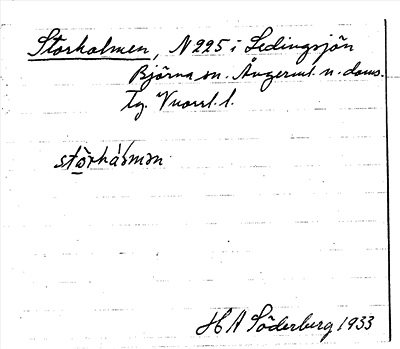 Storholmen, N 225 i Ledingsjön
Björna sn. Ångerml. n. doms.
Tg.
stòrhálmən
H A Söderberg 1933